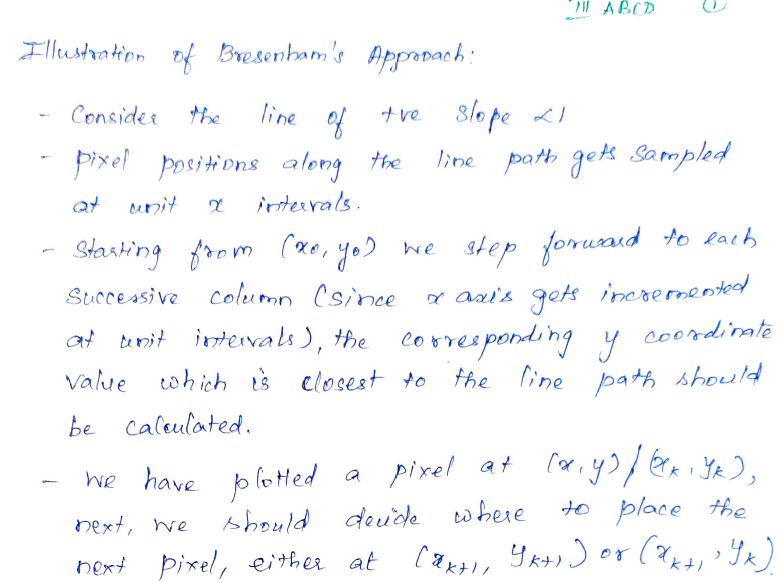 III ABCD ①
Illustration of Bresenham's Approach:
- Consider the line of +ve slope <1
- Pixel positions along the line path gets sampled
at unit x intervals.
- Starting from (x₀, y₀) we step forward to each
successive column (since x axis gets incremented
at unit intervals), the corresponding y coordinate
value which is closest to the line path should
be calculated.
- We have plotted a pixel at (x, y) / (xₖ, yₖ),
next, we should decide where to place the
next pixel, either at (xₖ₊₁, yₖ₊₁) or (xₖ₊₁, yₖ).